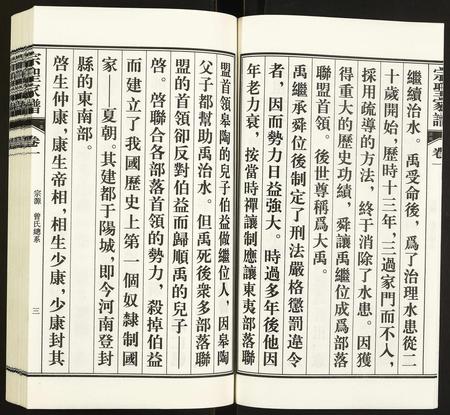 宗聖家譜
卷一
繼續治水。禹受命後，爲了治理水患從二
十歲開始，歷時十三年，三過家門而不入，
採用疏導的方法，終于消除了水患。因獲
得重大的歷史功績，舜讓禹繼位成爲部落
聯盟首領。後世尊稱爲大禹。
禹繼承舜位後制定了刑法嚴格懲罰違令
者，因而勢力日益強大。時過多年後他因
年老力衰，按當時禪讓制應讓東夷部落聯
盟首領皋陶的兒子伯益做繼位人，因皋陶
父子都幫助禹治水。但禹死後衆多部落聯
盟的首領却反對伯益而歸順禹的兒子——
啓。啓聯合各部落首領的勢力，殺掉伯益
而建立了我國歷史上第一個奴隸制國
家——夏朝。其建都于陽城，即今河南登封
縣的東南部。
啓生仲康，康生帝相，相生少康，少康封其
宗聖家譜
卷一
宗源
曾氏總系
三